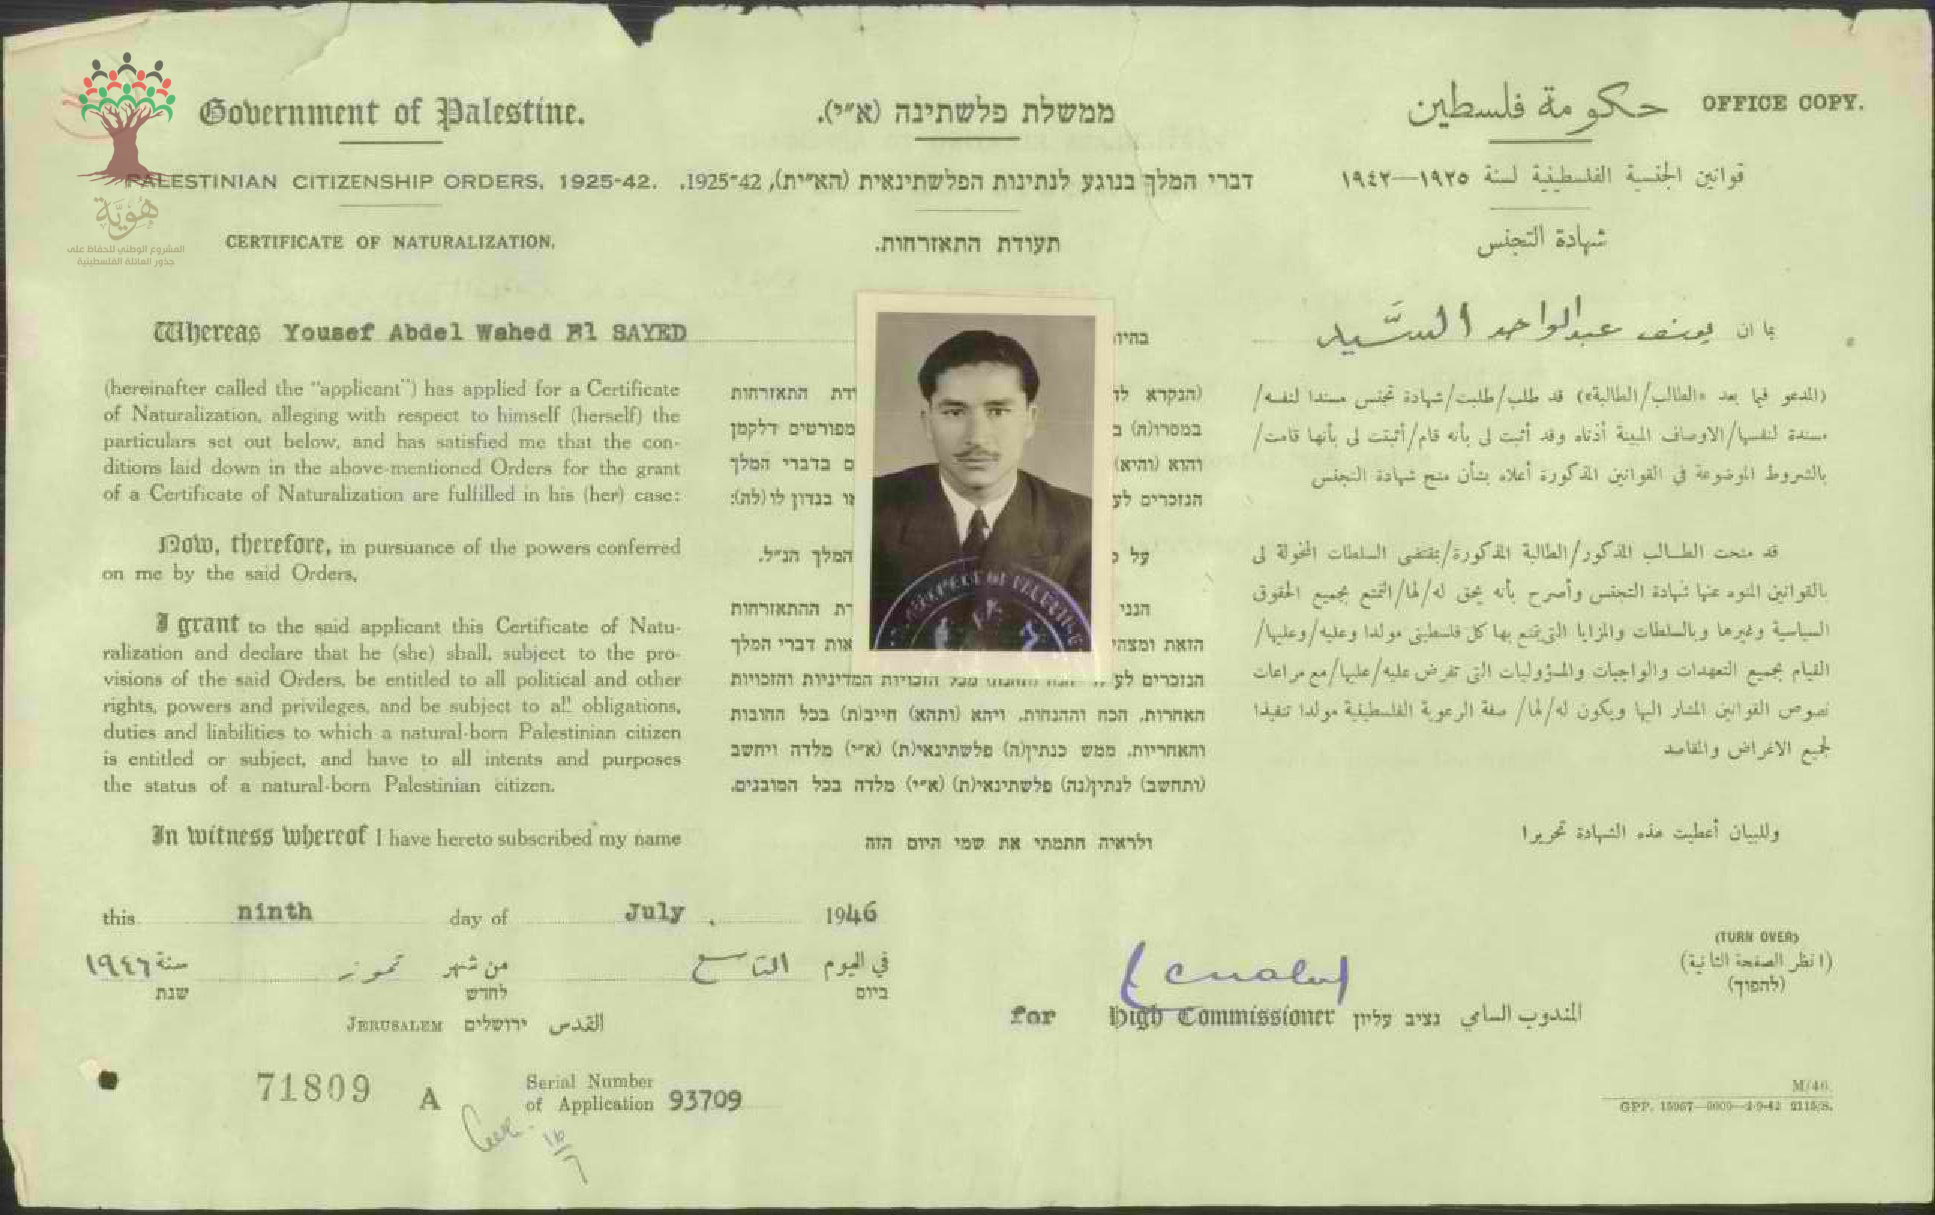 Government of Palestine.
ממשלת פלשתינה (א״י).
حكومة فلسطين
OFFICE COPY.
PALESTINIAN CITIZENSHIP ORDERS, 1925-42.
דברי המלך בנוגע לנתינות הפלשתינאית (הא״ית), 1925-42.
قوانين الجنسية الفلسطينية لسنة ١٩٢٥—١٩٤٢
هُويَّة
المشروع الوطني للحفاظ على
جذور العائلة الفلسطينية
CERTIFICATE OF NATURALIZATION.
תעודת התאזרחות.
شهادة التجنس
Whereas Yousef Abdel Wahed El SAYED
(hereinafter called the "applicant") has applied for a Certificate
of Naturalization, alleging with respect to himself (herself) the
particulars set out below, and has satisfied me that the con-
ditions laid down in the above-mentioned Orders for the grant
of a Certificate of Naturalization are fulfilled in his (her) case:
Now, therefore, in pursuance of the powers conferred
on me by the said Orders,
I grant to the said applicant this Certificate of Natu-
ralization and declare that he (she) shall, subject to the pro-
visions of the said Orders, be entitled to all political and other
rights, powers and privileges, and be subject to all obligations,
duties and liabilities to which a natural-born Palestinian citizen
is entitled or subject, and have to all intents and purposes
the status of a natural-born Palestinian citizen.
In witness whereof I have hereto subscribed my name
(הנקרא ... דת התאזרחות
במסרו(ה) ... מפורטים דלקמן
והוא (והיא) ... ם בדברי המלך
הנזכרים ... בנדון לו (לה):
על ... המלך הנ״ל.
הנני ... רת ההתאזרחות
הזאת ... אות דברי המלך
הנזכרים ... מכל הזכויות המדיניות והזכויות
האחרות, הכח וההנחות, ויהא (ותהא) חייב(ת) בכל החובות
והאחריות, ממש כנתין(ה) פלשתינאי(ת) (א״י) מלדה ויחשב
(ותחשב) לנתין(נה) פלשתינאי(ת) (א״י) מלדה בכל המובנים.
ולראיה חתמתי את שמי היום הזה
بما ان يوسف عبدالواحد السيّد
(المدعو فيما بعد «الطالب/الطالبة») قد طلب/طلبت/شهادة تجنس مسندا لنفسه/
مسندة لنفسها/الاوصاف المبينة أدناه وقد أثبت لي بأنه قام/أثبتت لي بأنها قامت/
بالشروط الموضوعة في القوانين المذكورة أعلاه بشأن منح شهادة التجنس
قد منحت الطالب المذكور/الطالبة المذكورة/بمقتضى السلطات المخولة لي
بالقوانين المنوه عنها شهادة التجنس وأصرح بأنه يحق له/لها/التمتع بجميع الحقوق
السياسية وغيرها وبالسلطات والمزايا التي يتمتع بها كل فلسطيني مولدا وعليه/وعليها/
القيام بجميع التعهدات والواجبات والمسؤوليات التي تفرض عليه/عليها/مع مراعات
نصوص القوانين المشار اليها ويكون له/لها/ صفة الرعوية الفلسطينية مولدا تنفيذا
لجميع الاغراض والمقاصد
وللبيان أعطيت هذه الشهادة تحريرا
this ninth day of July, 1946
في اليوم التاسع من شهر تموز سنة ١٩٤٦
ביום לחדש שנת
JERUSALEM ירושלים القدس
for High Commissioner נציב עליון المندوب السامي
(TURN OVER)
(انظر الصفحة الثانية)
(להפוך)
71809 A
Serial Number
of Application 93709
16/7
M/46.
GPP. 15957—5000—2-9-42 2115/S.
GOVERNMENT OF PALESTINE